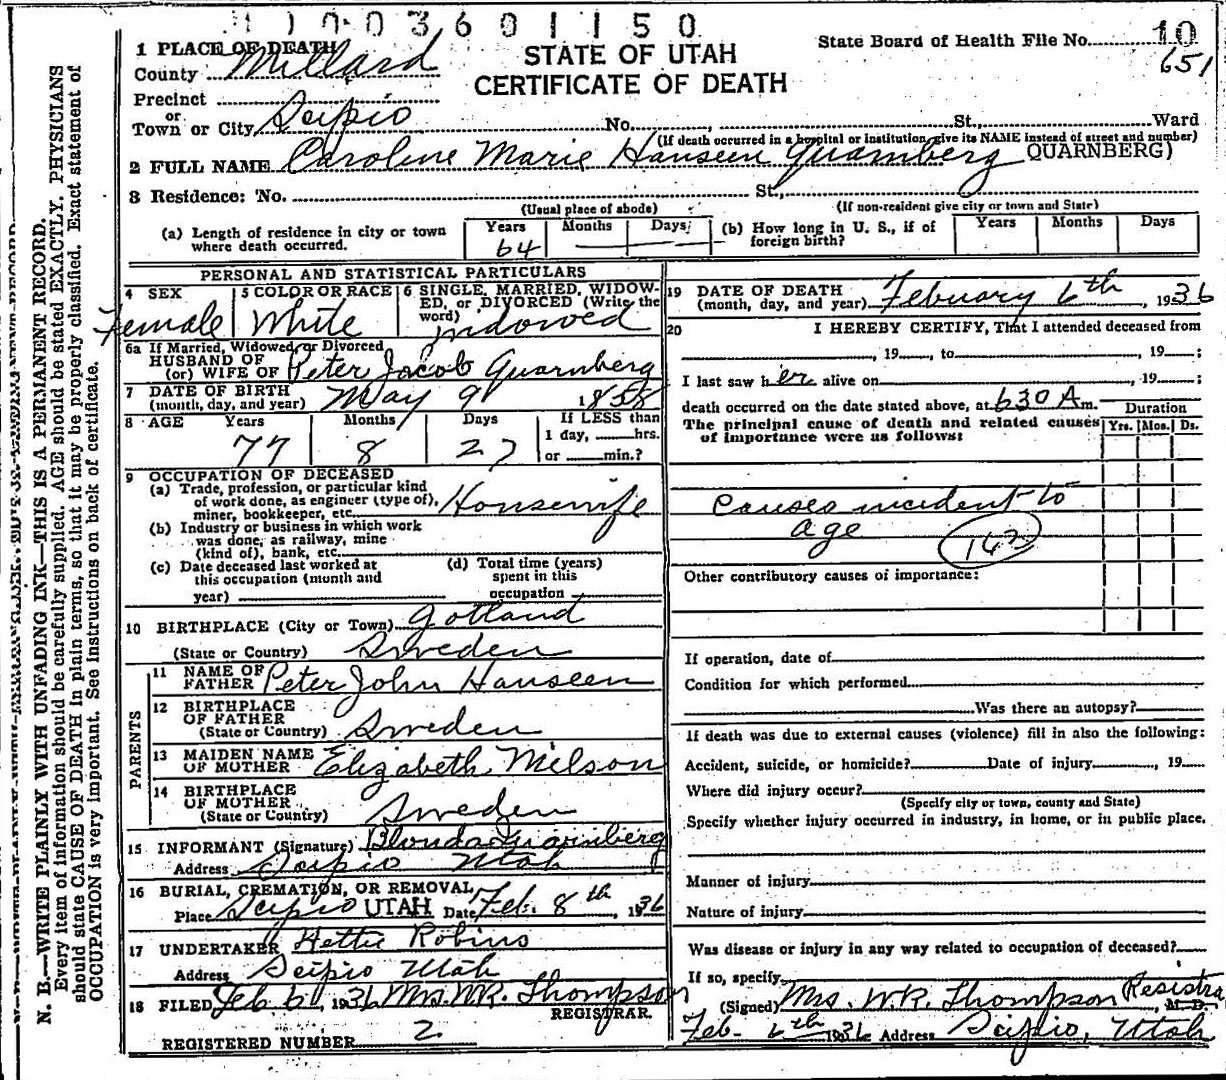 1003601150
1 PLACE OF DEATH
County Millard
STATE OF UTAH
CERTIFICATE OF DEATH
State Board of Health File No. 10
651
Precinct
or
Town or City Scipio No. , St., Ward
(If death occurred in a hospital or institution, give its NAME instead of street and number)
2 FULL NAME Caroline Marie Hanseen Quarnberg QUARNBERG)
3 Residence: No. St.,
(Usual place of abode) (If non-resident give city or town and State)
(a) Length of residence in city or town where death occurred. Years 64 Months Days (b) How long in U. S., if of foreign birth? Years Months Days
PERSONAL AND STATISTICAL PARTICULARS
4 SEX Female
5 COLOR OR RACE White
6 SINGLE, MARRIED, WIDOW-
ED, or DIVORCED (Write the
word) widowed
6a If Married, Widowed, or Divorced
HUSBAND OF
(or) WIFE OF Peter Jacob Quarnberg
7 DATE OF BIRTH
(month, day, and year) May 9 1858
8 AGE Years 77 Months 8 Days 27 If LESS than
1 day, hrs.
or min.?
9 OCCUPATION OF DECEASED
(a) Trade, profession, or particular kind
of work done, as engineer (type of),
miner, bookkeeper, etc. Housewife
(b) Industry or business in which work
was done, as railway, mine
(kind of), bank, etc.
(c) Date deceased last worked at
this occupation (month and
year)
(d) Total time (years)
spent in this
occupation
10 BIRTHPLACE (City or Town) Gotland
(State or Country) Sweden
PARENTS
11 NAME OF
FATHER Peter John Hanseen
12 BIRTHPLACE
OF FATHER
(State or Country) Sweden
13 MAIDEN NAME
OF MOTHER Elizabeth Nilson
14 BIRTHPLACE
OF MOTHER
(State or Country) Sweden
15 INFORMANT (Signature) Quarnberg
Address Scipio Utah
16 BURIAL, CREMATION, OR REMOVAL
Place Scipio UTAH Date Feb. 8th, 1936
17 UNDERTAKER Hettie Robins
Address Scipio Utah
18 FILED Feb 6, 1936 Mrs. W.R. Thompson
REGISTRAR.
REGISTERED NUMBER 2
19 DATE OF DEATH
(month, day, and year) February 6th, 1936
20 I HEREBY CERTIFY, That I attended deceased from
, 19 , to , 19 ;
I last saw her alive on , 19 ;
death occurred on the date stated above, at 630 A m.
The principal cause of death and related causes
of importance were as follows:
Duration
Yrs. Mos. Ds.
Causes incident to
age
Other contributory causes of importance:
If operation, date of
Condition for which performed
Was there an autopsy?
If death was due to external causes (violence) fill in also the following:
Accident, suicide, or homicide? Date of injury , 19
Where did injury occur?
(Specify city or town, county and State)
Specify whether injury occurred in industry, in home, or in public place.
Manner of injury
Nature of injury
Was disease or injury in any way related to occupation of deceased?
If so, specify
(Signed) Mrs. W.R. Thompson Registra, M. D.
Feb. 6th 1936 Address Scipio, Utah
N. B.—WRITE PLAINLY WITH UNFADING INK—THIS IS A PERMANENT RECORD.
Every item of information should be carefully supplied. AGE should be stated EXACTLY. PHYSICIANS
should state CAUSE OF DEATH in plain terms, so that it may be properly classified. Exact statement of
OCCUPATION is very important. See instructions on back of certificate.